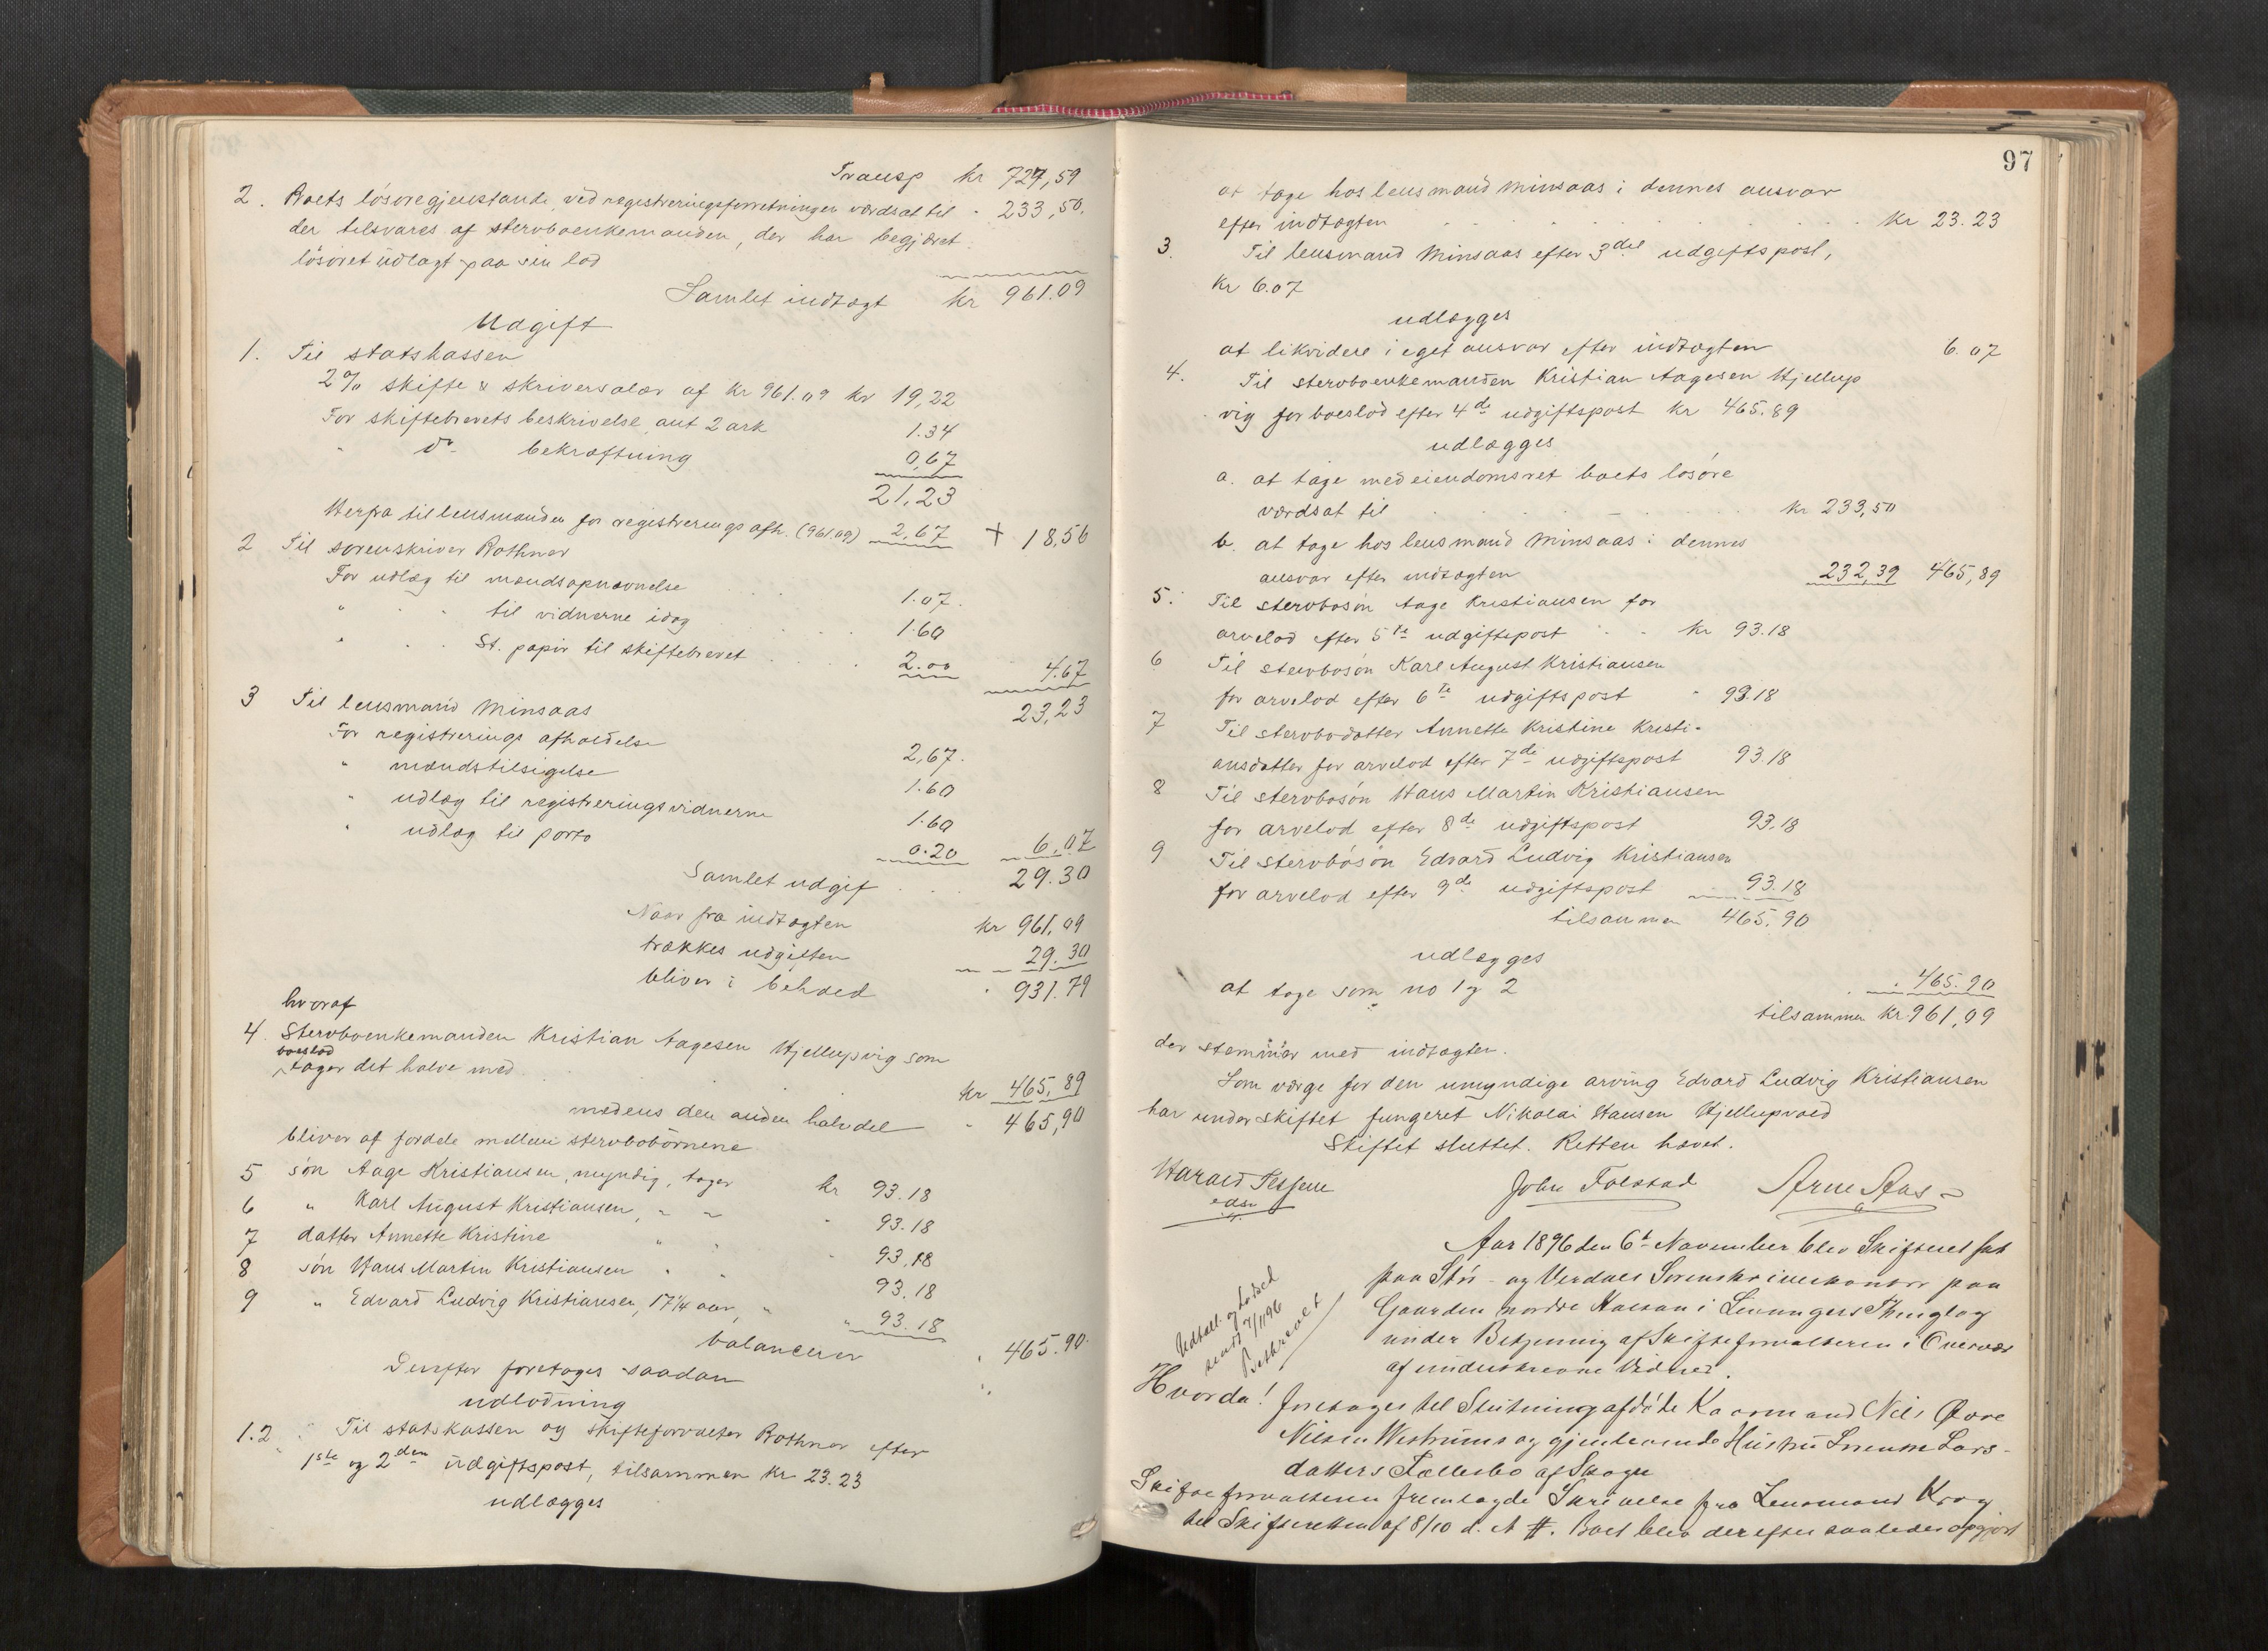 Transp kr 727,59
2. Boets lösöregjenstande, ved registreringsforretningen værdsat til " 233,50.
der tilsvares af stervboenkemanden, der har begjæret
lösöret udlagt paa sin lod
Samlet indtægt kr 961.09
Udgift
1. Til statskassen
2% skifte & skriversalær af kr 961.09 kr 19,22
For skiftebrevets beskrivelse, ant 2 ark 1.34
" do bekræftning 0,67
21,23
Herfra til lensmanden for registrerings afh. (961.09) 2,67 + 18,56
2 Til sorenskriver Bothner
For udlæg til mændsopnævnelse 1.07.
" " til vidnerne idag 1.60
" " St. papir til skiftebrevet 2.00 4.67
23,23
3 Til lensmand Minsaas
For registrerings afholdelse 2,67.
" mændstilsigelse 1.60
" udlæg til registreringsvidnerne 1.60
" udlæg til porto 0.20 6.07
Samlet udgif 29.30
Naar fra indtægten kr 961,09
trækkes udgiften 29.30
bliver i behold " 931.79
hvoraf
4. Stervboenkemanden Kristian Aagesen Hjellupvig som
boeslod
tager det halve med kr 465,89
medens den anden halvdel " 465,90
bliver af fordele mellem stervbobörnene
5 sön Aage Kristiansen, myndig, tager kr 93.18
6 " Karl August Kristiansen, " " " 93.18
7 datter Annette Kristine " " " 93,18
8 sön Hans Martin Kristiansen " " 93.18
9 " Edvard Ludvig Kristiansen, 17¼ aar, " " 93.18
balancerer " 465.90
Derefter foretages saadan
udlodning
1.2 Til statskassen og skifteforvalter Bothner efter
1ste og 2den udgiftspost, tilsammen kr 23.23
udlægges
97
at tage hos lensmand Minsaas i dennes ansvar
efter indtægten kr 23.23
3. Til lensmand Minsaas efter 3die udgiftspost,
kr 6.07
udlægges
at likvidere i eget ansvar efter indtægten 6.07
4. Til stervboenkemanden Kristian Aagesen Hjellup
vig for boeslod efter 4de udgiftspost kr 465.89
udlægges
a. at tage med eiendomsret boets lösöre
værdsat til kr 233,50
b. at tage hos lensmand Minsaas i dennes
ansvar efter indtægten 232,39 465,89
5. Til stervbosön Aage Kristiansen for
arvelod efter 5te udgiftspost kr 93.18
6 Til stervbosön Karl August Kristiansen
for arvelod efter 6te udgiftspost " 93.18
7 Til stervbodatter Annette Kristine Kristi-
ansdatter for arvelod efter 7de udgiftspost 93.18
8 Til stervbosön Hans Martin Kristiansen
for arvelod efter 8de udgiftspost 93.18
9 Til stervbosön Edvard Ludvig Kristiansen
for arvelod efter 9de udgiftspost 93.18
tilsammen 465.90
udlægges
at tage som no 1 og 2 465.90
tilsammen kr 961,09
der stemmer med indtægten.
Som værge for den umyndige arving Edvard Ludvig Kristiansen
har under skiftet fungeret Nikolai Hansen Hjellupvald
Skiftet sluttet. Retten hævet.
Harald Tessem
eds.
John Folstad Arne Aas
Aar 1896 den 6t November blev Skifteret sat
paa Stör- og Værdals Sorenskriverkontor paa
Gaarden nordre Halsan i Levangers Thinglag
under Betjening af Skifteforvalteren i Overvær
af underskrevne Vidner.
Udtall. og Lodsed
sendt 7/11 96
Beskrevet
Hvorda! foretages til Slutning afdöde Kaarmand Nils Övre
Nilsen Westrums og gjenlevende Hustru Lars-
datters Fællesbo af Skogn
Skifteforvalteren fremlagde Skrivelse fra Lensmand Krog
til Skifteretten af 8/10 d. A #. Boet blev derefter saaledes opgjort